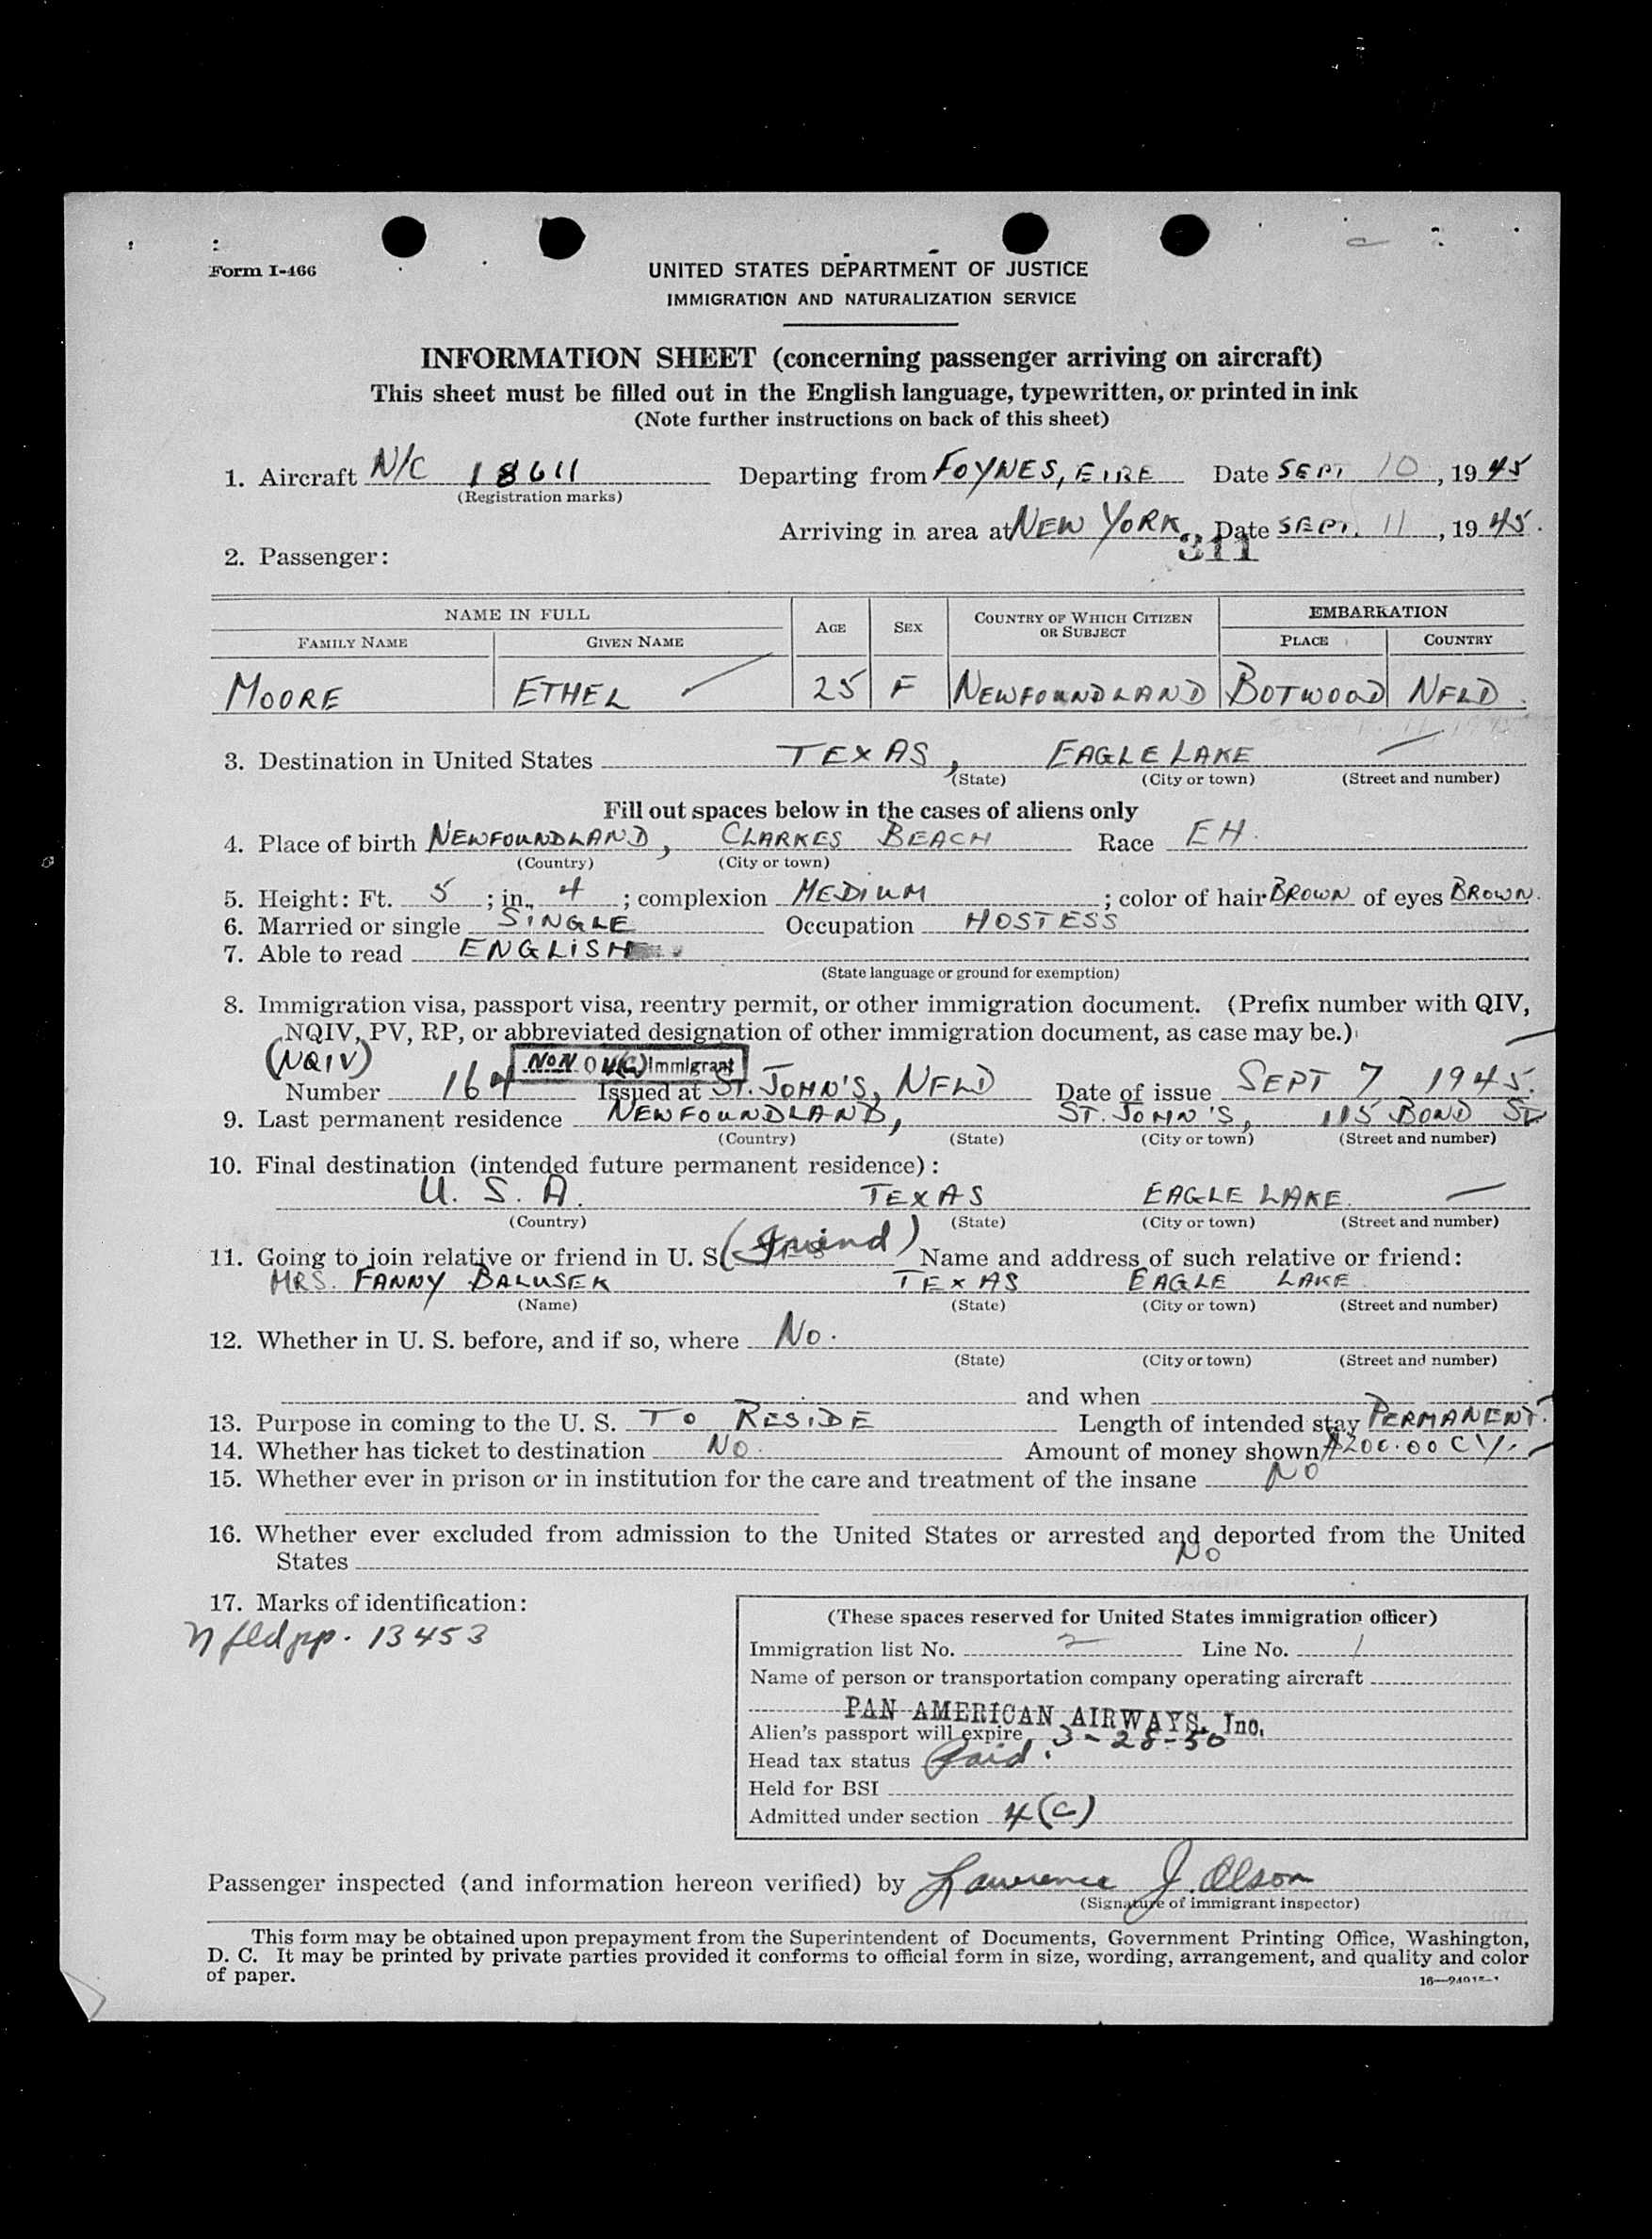 Form I-466
UNITED STATES DEPARTMENT OF JUSTICE
IMMIGRATION AND NATURALIZATION SERVICE
INFORMATION SHEET (concerning passenger arriving on aircraft)
This sheet must be filled out in the English language, typewritten, or printed in ink
(Note further instructions on back of this sheet)
1. Aircraft N/C 18611 Departing from FOYNES, EIRE Date SEPT 10, 1945
(Registration marks)
Arriving in area at NEW YORK Date SEPT. 11, 1945.
311
2. Passenger:
NAME IN FULL AGE SEX COUNTRY OF WHICH CITIZEN OR SUBJECT EMBARKATION
FAMILY NAME GIVEN NAME PLACE COUNTRY
MOORE ETHEL 25 F NEWFOUNDLAND BOTWOOD NFLD.
3. Destination in United States TEXAS, EAGLE LAKE —
(State) (City or town) (Street and number)
Fill out spaces below in the cases of aliens only
4. Place of birth NEWFOUNDLAND, CLARKES BEACH Race EH.
(Country) (City or town)
5. Height: Ft. 5; in. 4; complexion MEDIUM; color of hair BROWN of eyes BROWN.
6. Married or single SINGLE Occupation HOSTESS
7. Able to read ENGLISH
(State language or ground for exemption)
8. Immigration visa, passport visa, reentry permit, or other immigration document. (Prefix number with QIV,
NQIV, PV, RP, or abbreviated designation of other immigration document, as case may be.)
(NQIV) NON Immigrant
Number 164 Issued at ST. JOHN'S, NFLD Date of issue SEPT 7 1945.
9. Last permanent residence NEWFOUNDLAND, ST. JOHN'S, 115 BOND ST
(Country) (State) (City or town) (Street and number)
10. Final destination (intended future permanent residence):
U. S. A. TEXAS EAGLE LAKE. —
(Country) (State) (City or town) (Street and number)
11. Going to join relative or friend in U. S. (Friend) Name and address of such relative or friend:
MRS. FANNY BALUSEK TEXAS EAGLE LAKE
(Name) (State) (City or town) (Street and number)
12. Whether in U. S. before, and if so, where No.
(State) (City or town) (Street and number)
and when
13. Purpose in coming to the U. S. TO RESIDE Length of intended stay PERMANENT.
14. Whether has ticket to destination NO. Amount of money shown $200.00
15. Whether ever in prison or in institution for the care and treatment of the insane NO
16. Whether ever excluded from admission to the United States or arrested and deported from the United
States NO
17. Marks of identification:
nfld pp. 13453
(These spaces reserved for United States immigration officer)
Immigration list No. 2 Line No. 1
Name of person or transportation company operating aircraft
PAN AMERICAN AIRWAYS, Inc.
Alien's passport will expire 3-28-50
Head tax status Paid.
Held for BSI
Admitted under section 4(C)
Passenger inspected (and information hereon verified) by Lawrence J. Olson
(Signature of immigrant inspector)
This form may be obtained upon prepayment from the Superintendent of Documents, Government Printing Office, Washington,
D. C. It may be printed by private parties provided it conforms to official form in size, wording, arrangement, and quality and color
of paper.